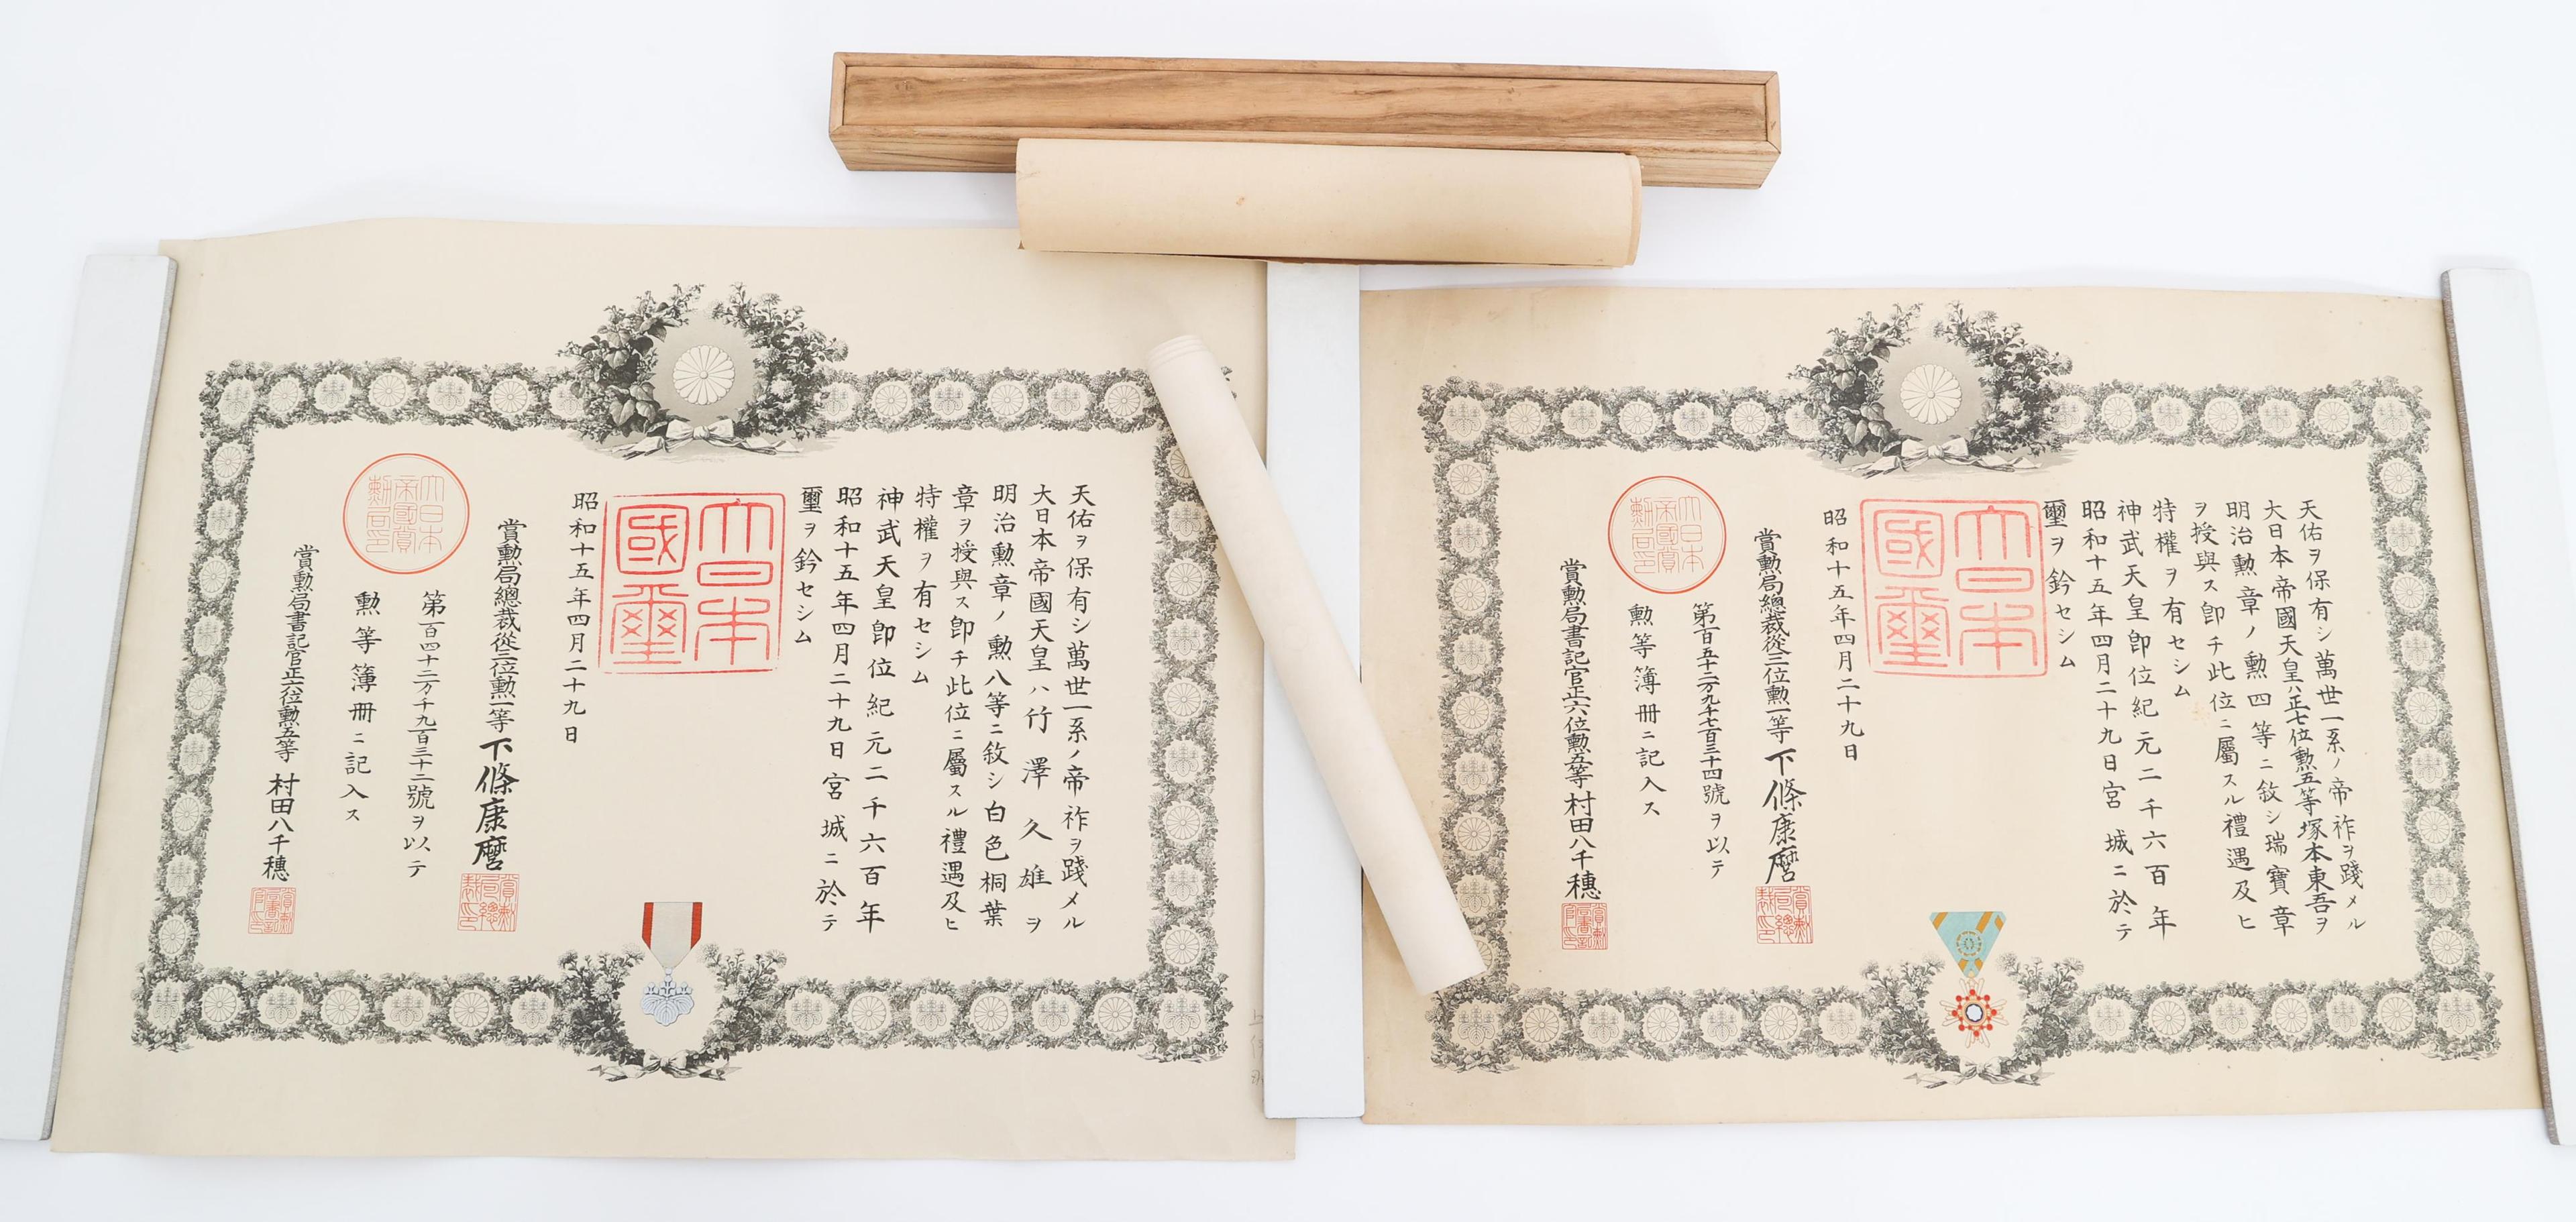 天佑ヲ保有シ萬世一系ノ帝祚ヲ踐メル
大日本帝國天皇ハ竹澤久雄ヲ
明治勲章ノ勲八等ニ敘シ白色桐葉
章ヲ授與ス即チ此位ニ屬スル禮遇及ヒ
特權ヲ有セシム
神武天皇即位紀元二千六百年
昭和十五年四月二十九日宮城ニ於テ
璽ヲ鈐セシム
大日本
國璽
昭和十五年四月二十九日
賞勲局總裁從三位勲一等下條康麿
第百四十二万千九百三十二號ヲ以テ
大日本
帝國賞
勲局印
勲等簿冊ニ記入ス
賞勲局書記官正六位勲五等村田八千穗
天佑ヲ保有シ萬世一系ノ帝祚ヲ踐メル
大日本帝國天皇ハ正七位勲五等塚本東吾ヲ
明治勲章ノ勲四等ニ敘シ瑞寶章
ヲ授與ス即チ此位ニ屬スル禮遇及ヒ
特權ヲ有セシム
神武天皇即位紀元二千六百年
昭和十五年四月二十九日宮城ニ於テ
璽ヲ鈐セシム
大日本
國璽
昭和十五年四月二十九日
賞勲局總裁從三位勲一等下條康麿
第百五十二万九千七百三十四號ヲ以テ
大日本
帝國賞
勲局印
勲等簿冊ニ記入ス
賞勲局書記官正六位勲五等村田八千穗